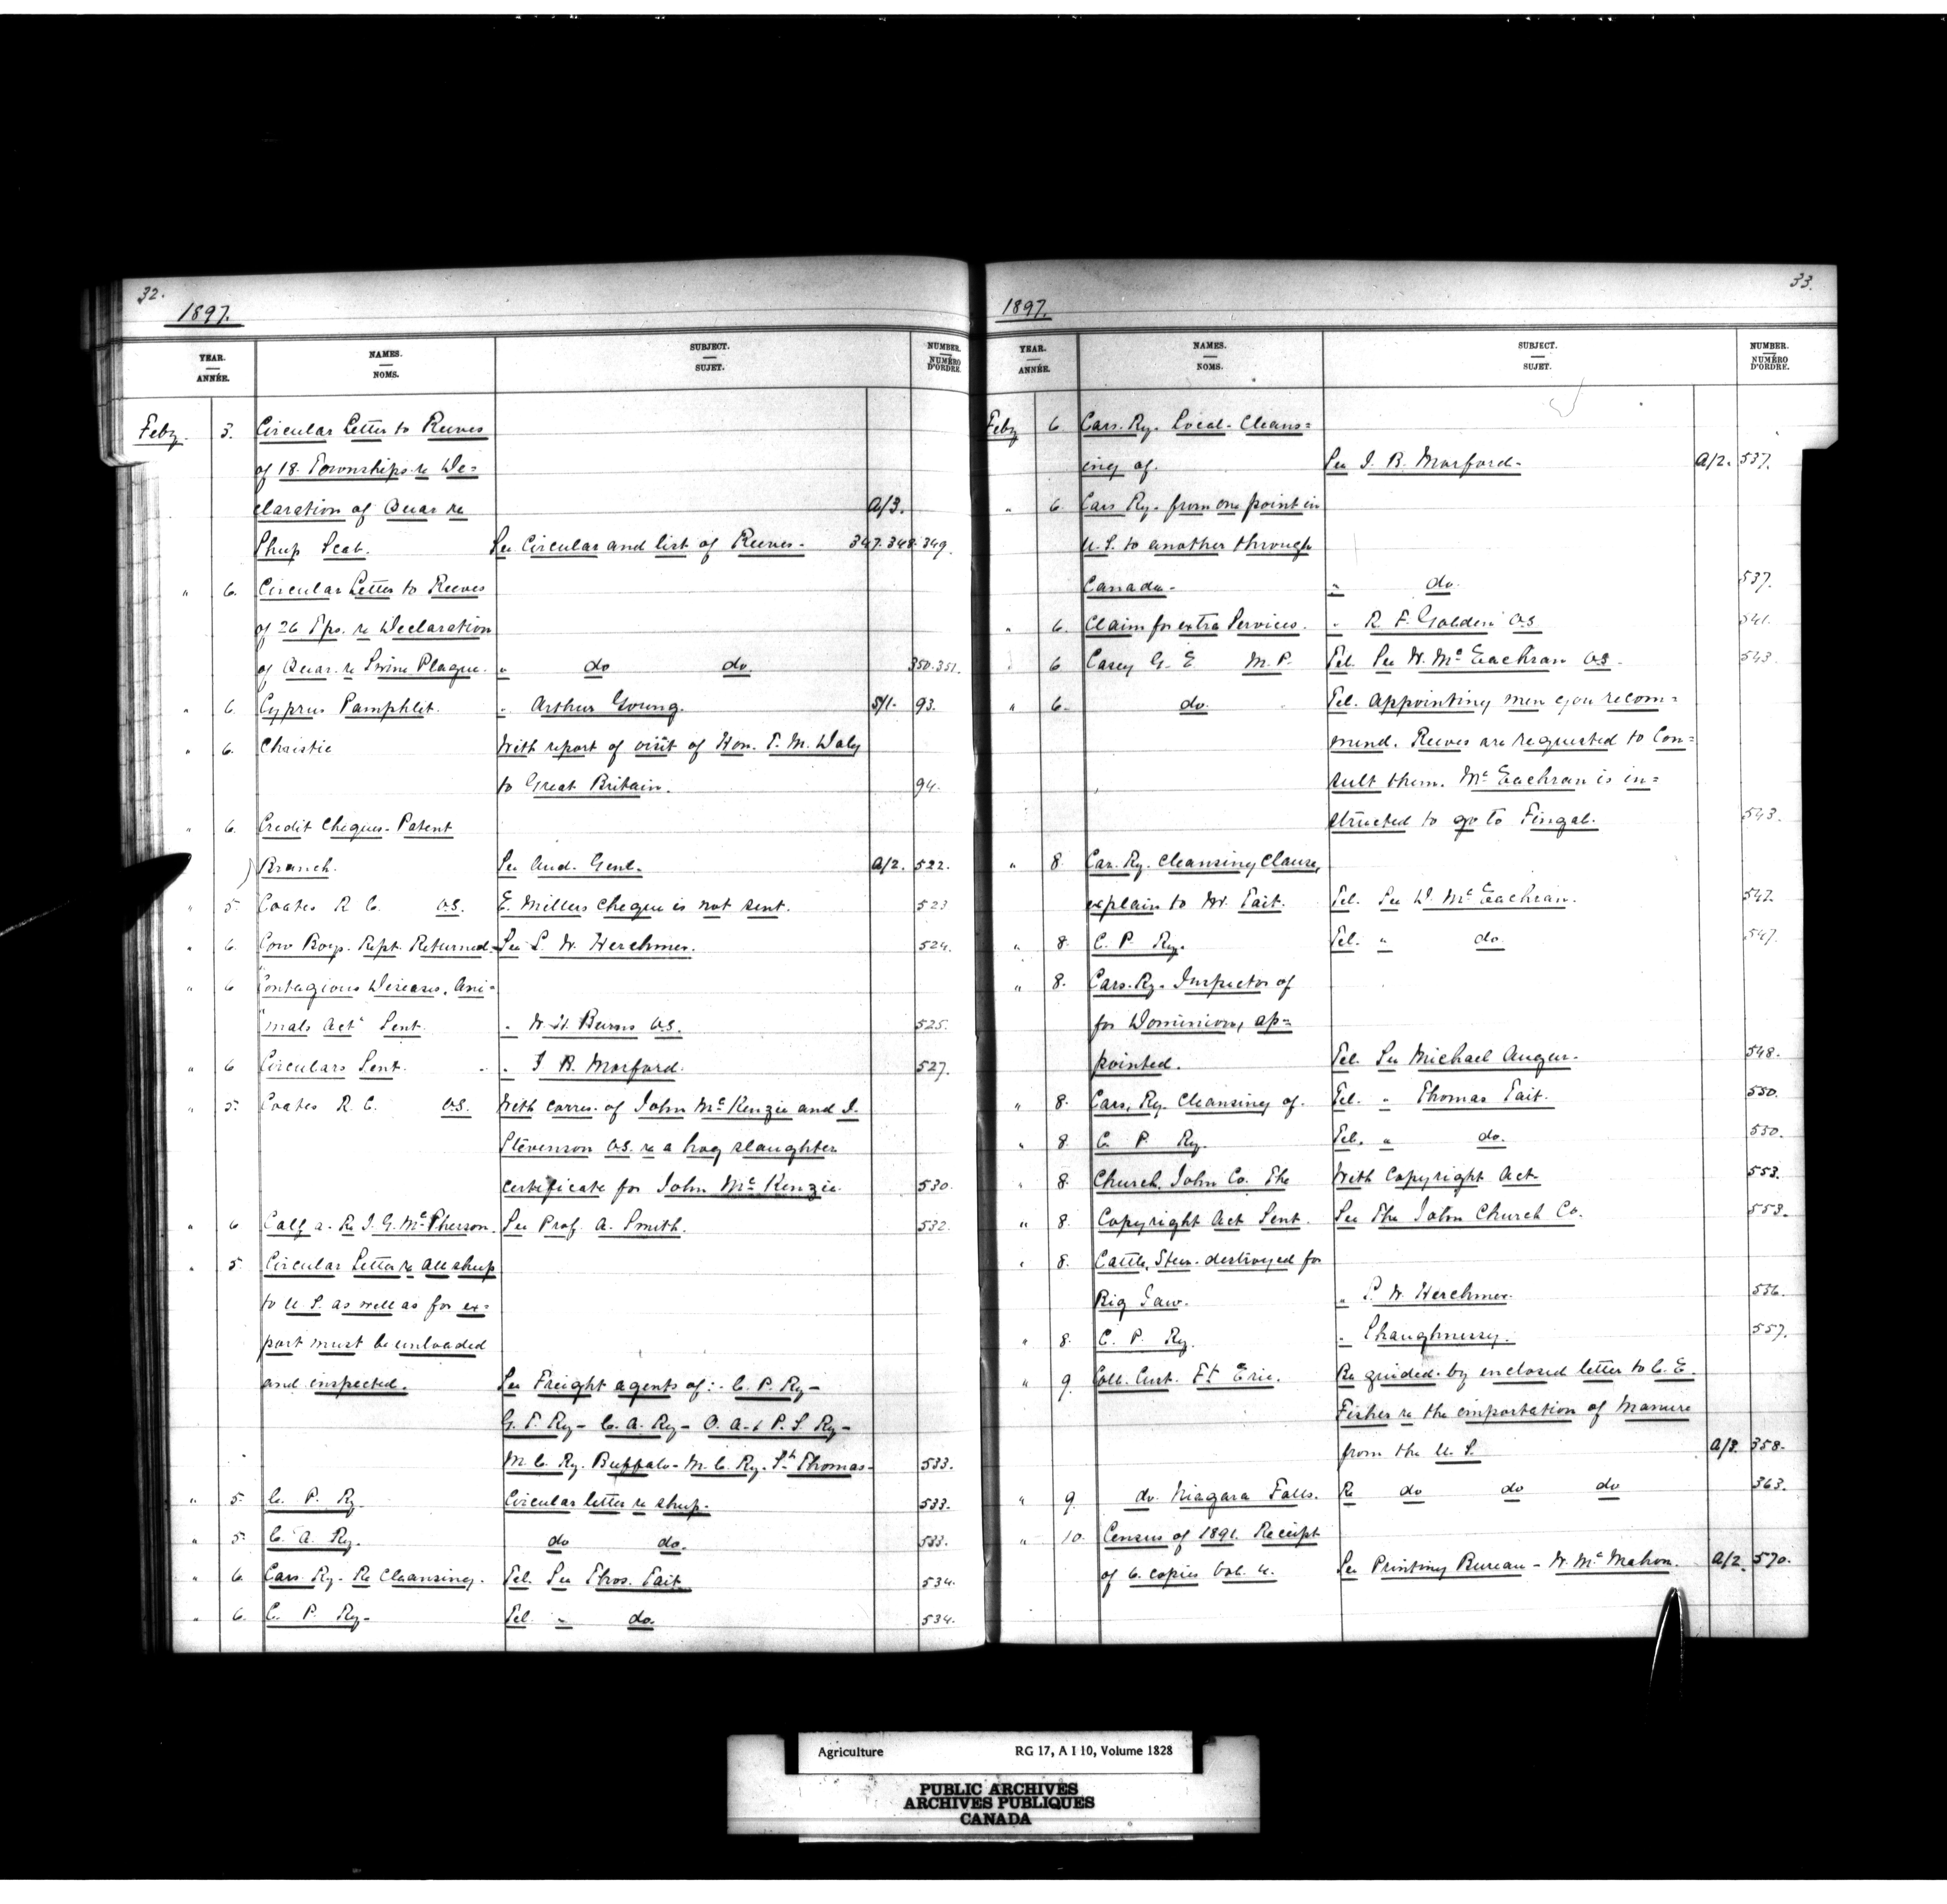 32.
1897.
YEAR. ANNÉE. NAMES. NOMS. SUBJECT. SUJET. NUMBER. NUMÉRO D'ORDRE.
Feby. 3. Circular Letter to Reeves
of 18 Townships re De=
claration of Quar re A/3.
Sheep Scab. See Circular and list of Reeves - 347.348.349.
" 6. Circular Letter to Reeves
of 26 Tps. re Declaration
of Quar. re Swine Plague. " do do. 350.351.
" 6. Cyprus Pamphlet. " Arthur Young. S/1. 93.
" 6. Christie With report of visit of Hon. T. M. Daly
to Great Britain. 94.
" 6. Credit Cheques - Patent
Branch. See Aud. Genl. A/2. 522.
" 5. Coates R. C. V.S. E. Millers cheque is not sent. 523
" 6. Cow Boys. Rept. Returned - See L. W. Herchmer. 524.
" 6 Contagious Diseases, Ani=
"mals Act" Sent. " W. H. Burns V.S. 525.
" 6 Circulars Sent. " J B. Morford. 527.
" 5. Coates R. C. V.S. With corres. of John McKenzie and J.
Stevenson V.S. re a hog slaughter
certificate for John McKenzie. 530.
" 6 Calf a. Re J. G. McPherson. See Prof. A. Smith. 532.
" 5. Circular Letter re all sheep
to U.S. as well as for ex=
port must be unloaded
and inspected. See Freight agents of: - C. P. Ry -
G. T. Ry - C. A. Ry - O. A. & P. S. Ry -
M. C. Ry. Buffalo - M. C. Ry. St Thomas - 533.
" 5. C. P. Ry. Circular letter re sheep. 533.
" 5. C. A. Ry. do do. 533.
" 6. Cars Ry. Re Cleansing. Tel. See Thos. Tait. 534.
" 6. C. P. Ry - Tel. " do. 534.
33.
1897.
YEAR. ANNÉE. NAMES. NOMS. SUBJECT. SUJET. NUMBER. NUMÉRO D'ORDRE.
Feby 6. Cars. Ry. Local - Cleans=
ing of. See J. B. Morford. A/2. 537.
" 6. Cars Ry. from one point in
U.S. to another through
Canada - " do. 537.
" 6. Claim for extra Services. " R. F. Golden V.S 541.
" 6 Casey G. E. M.P. Tel. See D. McEachran V.S. 543.
" 6. do. Tel. Appointing men you recom=
mend. Reeves are requested to Con=
sult them. McEachran is in=
structed to go to Fingal. 543.
" 8. Car. Ry. Cleansing Clause,
explain to Mr. Tait. Tel. See D. McEachran. 547.
" 8. C. P. Ry. Tel. " do. 547.
" 8. Cars. Ry. Inspector of
for Dominion, ap=
pointed. Tel. See Michael Auger. 548.
" 8. Cars, Ry. Cleansing of. Tel. " Thomas Tait. 550.
" 8. C. P. Ry. Tel. " do. 550.
" 8. Church, John Co. The With Copyright Act 553.
" 8. Copyright Act Sent. See The John Church Co. 553.
" 8. Cattle, Steer - destroyed for
Big Jaw. " L. W. Herchmer. 556.
" 8. C. P. Ry. " Shaughnessy. 557.
" 9. Coll. Cust. Ft Erie. Be guided by enclosed letter to C. E.
Fisher re the importation of Manure
from the U.S. A/3. 358.
" 9. do. Niagara Falls. Be do do do 363.
" 10. Census of 1891. Receipt
of 6. copies Vol. 4. See Printing Bureau - W. McMahon. A/2. 570.
Agriculture RG 17, A I 10, Volume 1828
PUBLIC ARCHIVES
ARCHIVES PUBLIQUES
CANADA